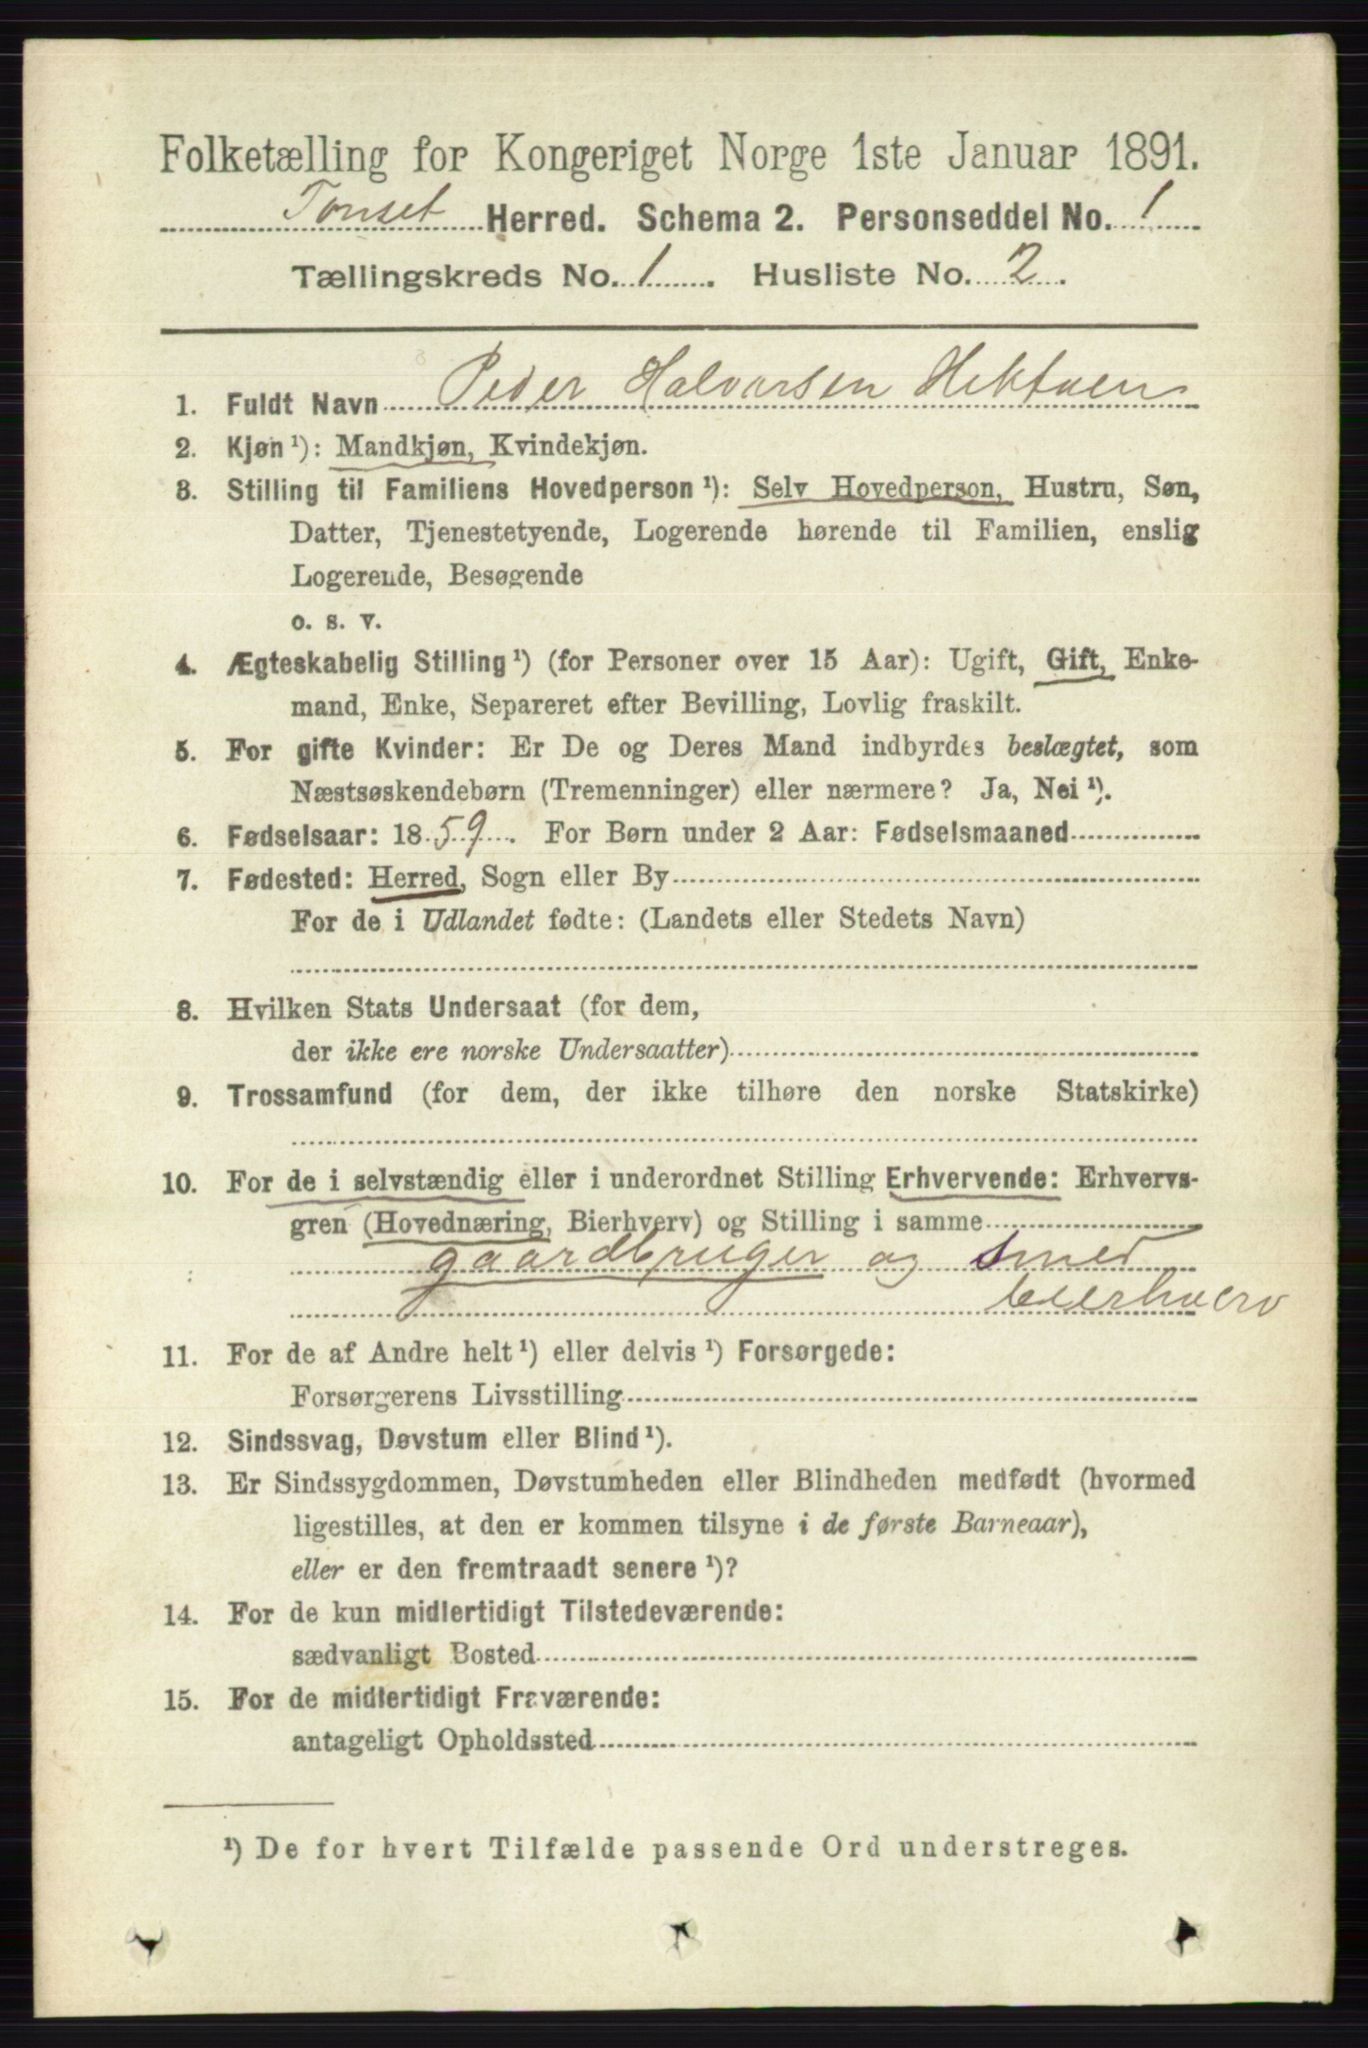 Folketælling for Kongeriget Norge 1ste Januar 1891.
Tønset Herred. Schema 2. Personseddel No. 1
Tællingskreds No. 1. Husliste No. 2.
1. Fuldt Navn Peder Halvorsen Hektoen
2. Kjøn ¹): Mandkjøn, Kvindekjøn.
3. Stilling til Familiens Hovedperson ¹): Selv Hovedperson, Hustru, Søn,
Datter, Tjenestetyende, Logerende hørende til Familien, enslig
Logerende, Besøgende
o. s. v.
4. Ægteskabelig Stilling ¹) (for Personer over 15 Aar): Ugift, Gift, Enke-
mand, Enke, Separeret efter Bevilling, Lovlig fraskilt.
5. For gifte Kvinder: Er De og Deres Mand indbyrdes beslægtet, som
Næstsøskendebørn (Tremenninger) eller nærmere? Ja, Nei ¹).
6. Fødselsaar: 1859. For Børn under 2 Aar: Fødselsmaaned
7. Fødested: Herred, Sogn eller By
For de i Udlandet fødte: (Landets eller Stedets Navn)
8. Hvilken Stats Undersaat (for dem,
der ikke ere norske Undersaatter)
9. Trossamfund (for dem, der ikke tilhøre den norske Statskirke)
10. For de i selvstændig eller i underordnet Stilling Erhvervende: Erhvervs-
gren (Hovednæring, Bierhverv) og Stilling i samme
gaardbruger og Smed
beierhverv
11. For de af Andre helt ¹) eller delvis ¹) Forsørgede:
Forsørgerens Livsstilling
12. Sindssvag, Døvstum eller Blind ¹).
13. Er Sindssygdommen, Døvstumheden eller Blindheden medfødt (hvormed
ligestilles, at den er kommen tilsyne i de første Barneaar),
eller er den fremtraadt senere ¹)?
14. For de kun midlertidigt Tilstedeværende:
sædvanligt Bosted
15. For de midlertidigt Fraværende:
antageligt Opholdssted
¹) De for hvert Tilfælde passende Ord understreges.